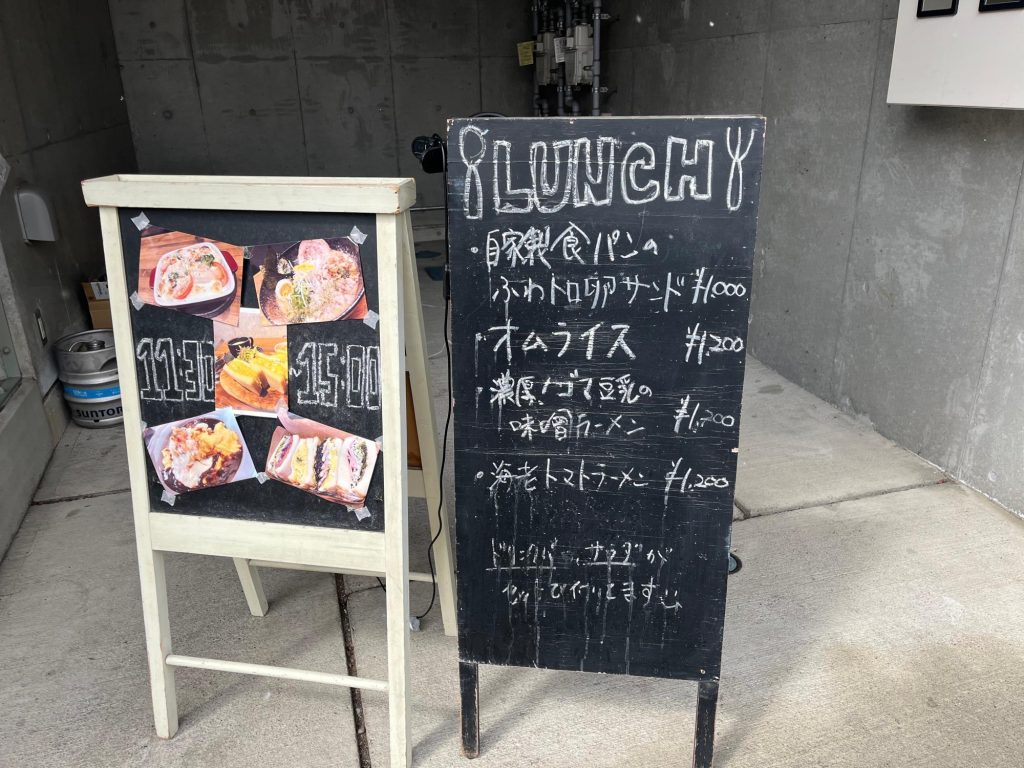 LUNCH
・自家製食パンの
ふわトロ卵サンド ¥1,000
・オムライス ¥1,200
・濃厚!ゴマ豆乳の
味噌ラーメン ¥1,200
・海老トマトラーメン ¥1,200
ドリンクバー、サラダが
セットで付いてます
11:30~15:00
SUNTORY